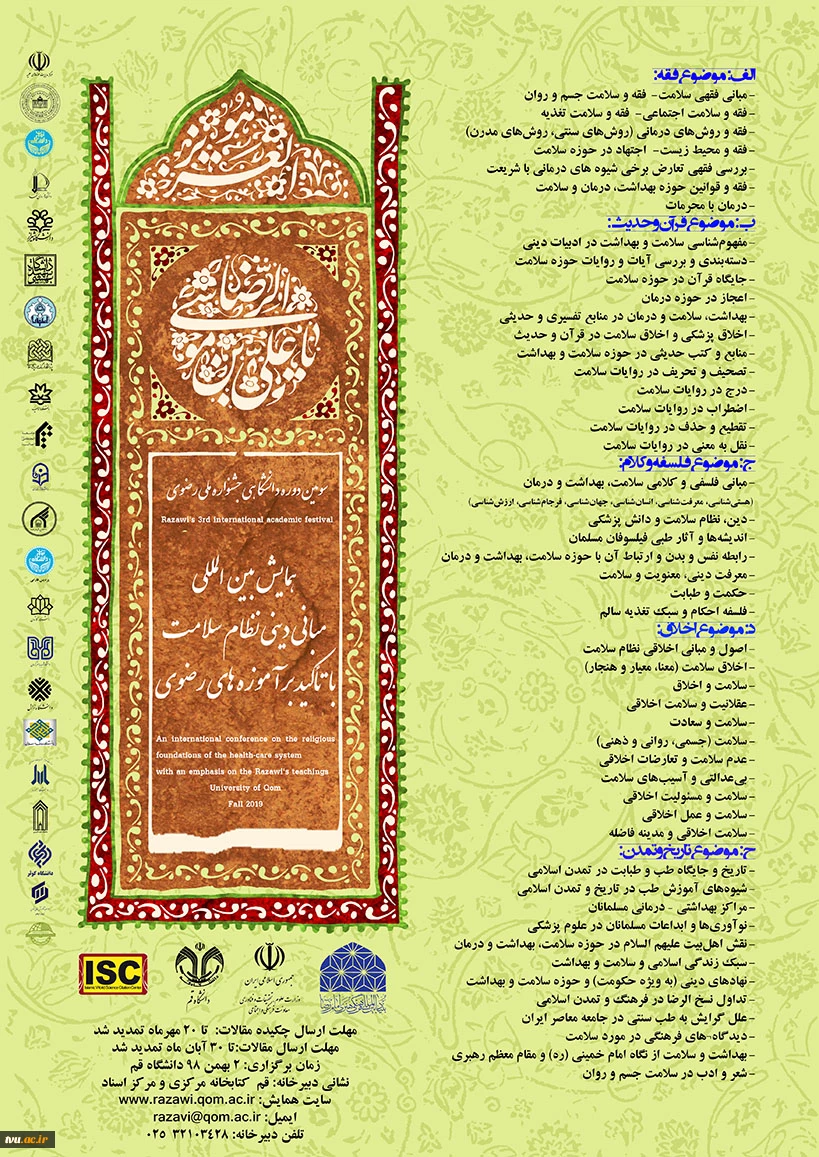 الف: موضوع فقه:
- مبانی فقهی سلامت- فقه و سلامت جسم و روان
- فقه و سلامت اجتماعی- فقه و سلامت تغذیه
- فقه و روش‌های درمانی (روش‌های سنتی، روش‌های مدرن)
- فقه و محیط زیست- اجتهاد در حوزه سلامت
- بررسی فقهی تعارض برخی شیوه های درمانی با شریعت
- فقه و قوانین حوزه بهداشت، درمان و سلامت
- درمان با محرمات
ب: موضوع قرآن و حدیث:
- مفهوم‌شناسی سلامت و بهداشت در ادبیات دینی
- دسته‌بندی و بررسی آیات و روایات حوزه سلامت
- جایگاه قرآن در حوزه سلامت
- اعجاز در حوزه درمان
- بهداشت، سلامت و درمان در منابع تفسیری و حدیثی
- اخلاق پزشکی و اخلاق سلامت در قرآن و حدیث
- منابع و کتب حدیثی در حوزه سلامت و بهداشت
- تصحیف و تحریف در روایات سلامت
- درج در روایات سلامت
- اضطراب در روایات سلامت
- تقطیع و حذف در روایات سلامت
- نقل به معنی در روایات سلامت
ج: موضوع فلسفه و کلام:
- مبانی فلسفی و کلامی سلامت، بهداشت و درمان
(هستی‌شناسی، معرفت‌شناسی، انسان‌شناسی، جهان‌شناسی، فرجام‌شناسی، ارزش‌شناسی)
- دین، نظام سلامت و دانش پزشکی
- اندیشه‌ها و آثار طبی فیلسوفان مسلمان
- رابطه نفس و بدن و ارتباط آن با حوزه سلامت، بهداشت و درمان
- معرفت دینی، معنویت و سلامت
- حکمت و طبابت
- فلسفه احکام و سبک تغذیه سالم
د: موضوع اخلاق:
- اصول و مبانی اخلاقی نظام سلامت
- اخلاق سلامت (معنا، معیار و هنجار)
- سلامت و اخلاق
- عقلانیت و سلامت اخلاقی
- سلامت و سعادت
- سلامت (جسمی، روانی و ذهنی)
- عدم سلامت و تعارضات اخلاقی
- بی‌عدالتی و آسیب‌های سلامت
- سلامت و مسئولیت اخلاقی
- سلامت و عمل اخلاقی
- سلامت اخلاقی و مدینه فاضله
ح: موضوع تاریخ و تمدن:
- تاریخ و جایگاه طب و طبابت در تمدن اسلامی
- شیوه‌های آموزش طب در تاریخ و تمدن اسلامی
- مراکز بهداشتی - درمانی مسلمانان
- نوآوری‌ها و ابداعات مسلمانان در علوم پزشکی
- نقش اهل‌بیت علیهم السلام در حوزه سلامت، بهداشت و درمان
- سبک زندگی اسلامی و سلامت و بهداشت
- نهادهای دینی (به ویژه حکومت) و حوزه سلامت و بهداشت
- تداول نسخ الرضا در فرهنگ و تمدن اسلامی
- علل گرایش به طب سنتی در جامعه معاصر ایران
- دیدگاه‌های فرهنگی در مورد سلامت
- بهداشت و سلامت از نگاه امام خمینی (ره) و مقام معظم رهبری
- شعر و ادب در سلامت جسم و روان
هو العزیز
یا علی بن موسی الرضا
سومین دوره دانشگاهی جشنواره ملی رضوی
Razawi's 3rd international academic festival
همایش بین المللی
مبانی دینی نظام سلامت
با تاکید بر آموزه های رضوی
An international conference on the religious
foundations of the health-care system
with an emphasis on the Razawi's teachings
University of Qom
Fall 2019
ISC
Islamic World Science Citation Center
دانشگاه قم
جمهوری اسلامی ایران
وزارت علوم، تحقیقات و فناوری
معاونت فرهنگی و اجتماعی
دانشگاه کوثر
مهلت ارسال چکیده مقالات: تا ۲۰ مهرماه تمدید شد
مهلت ارسال مقالات: تا ۳۰ آبان ماه تمدید شد
زمان برگزاری: ۲ بهمن ۹۸ دانشگاه قم
نشانی دبیرخانه: قم کتابخانه مرکزی و مرکز اسناد
سایت همایش: www.razawi.qom.ac.ir
ایمیل: razavi@qom.ac.ir
تلفن دبیرخانه: ۳۲۱۰۳۴۲۸ ۰۲۵
tvu.ac.ir